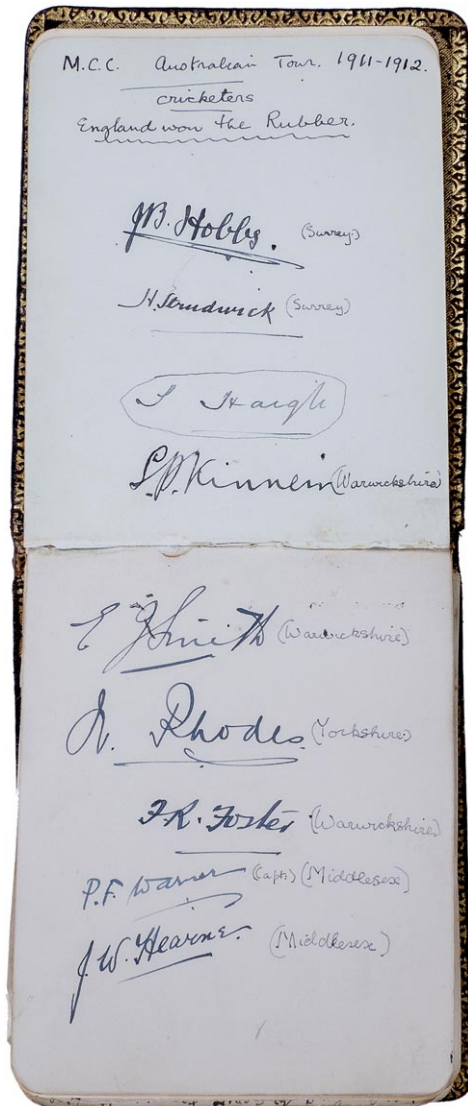 M.C.C. Australian Tour. 1911-1912.
cricketers
England won the Rubber.
J.B. Hobbs. (Surrey)
H. Strudwick (Surrey)
S Haigh
S.P. Kinneir (Warwickshire)
E J Smith (Warwickshire)
W. Rhodes. (Yorkshire)
F.R. Foster (Warwickshire)
P.F. Warner (Capt.) (Middlesex)
J.W. Hearne. (Middlesex)